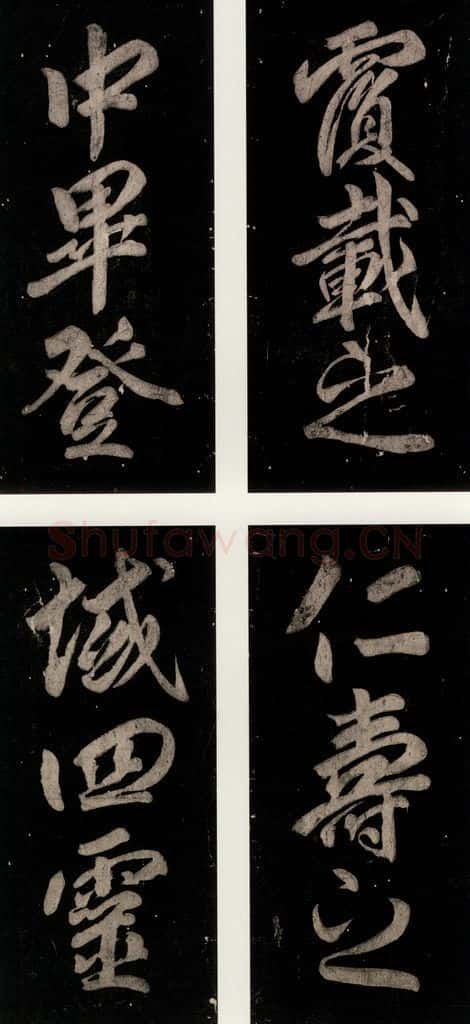 覆載之
中畢登
Shufawang.CN
仁壽之
域四靈